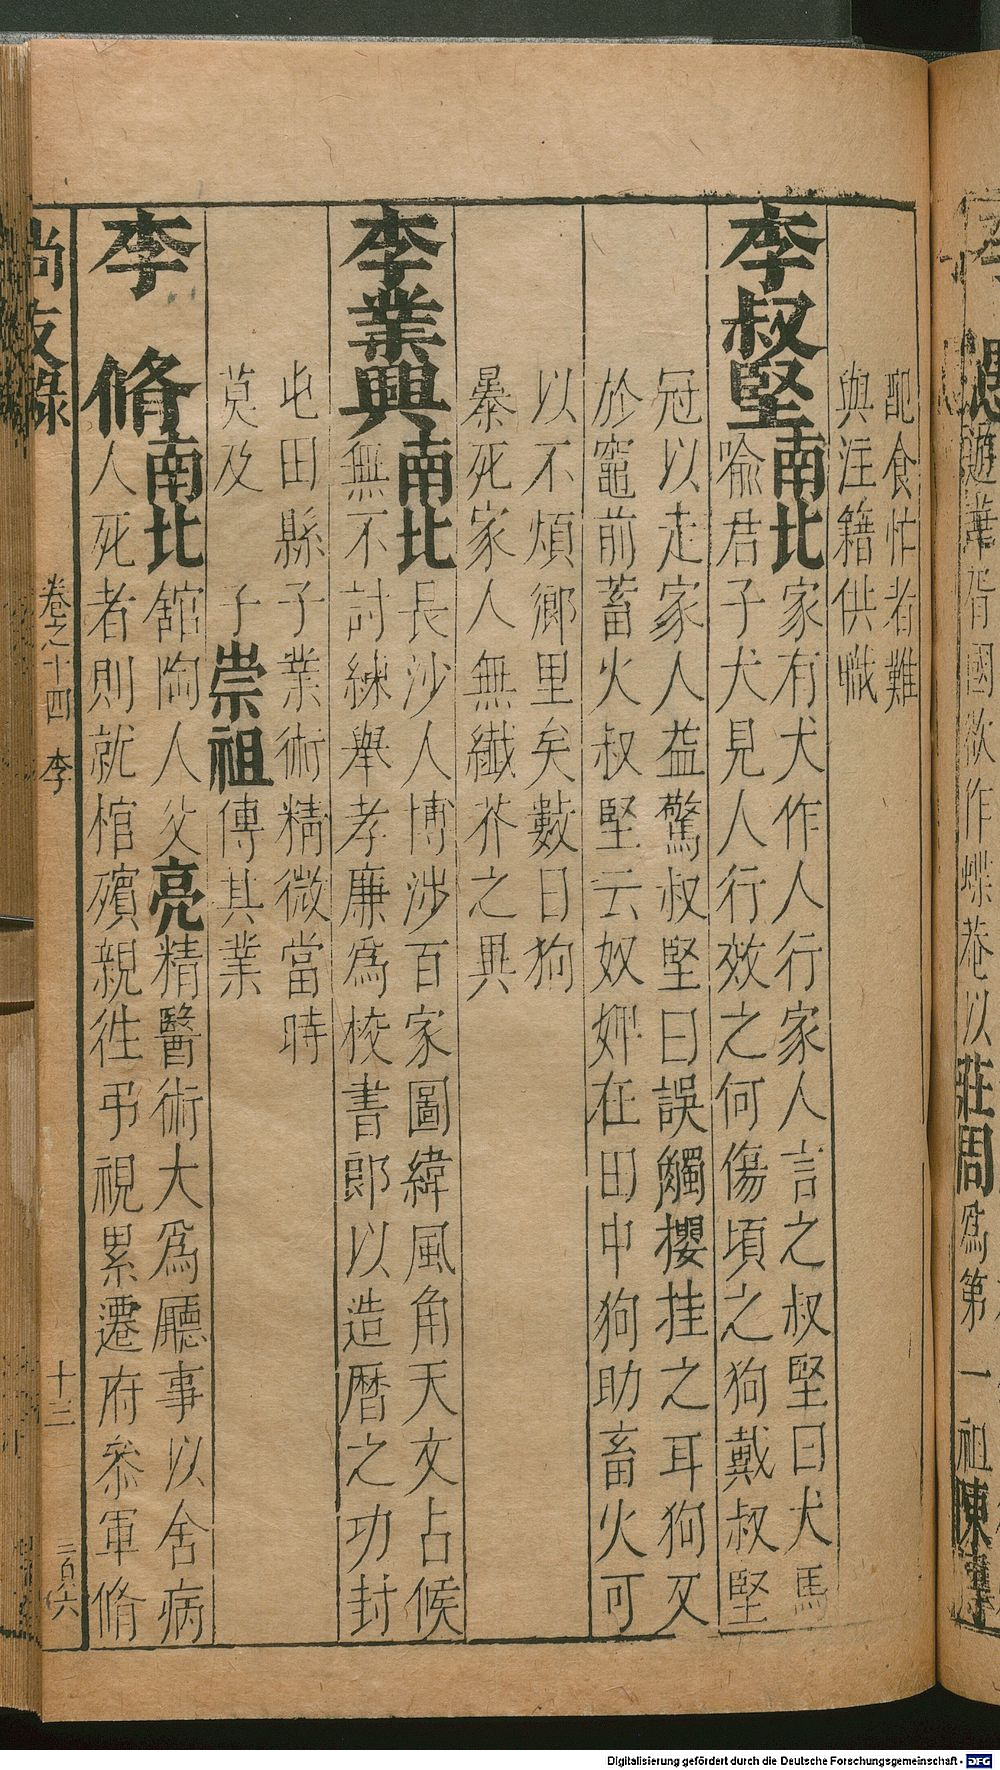 配食忙者難
與注籍供職
李叔堅南北家有犬作人行家人言之叔堅曰犬馬
喻君子犬見人行效之何傷頃之狗戴叔堅
冠以走家人益驚叔堅曰誤觸纓挂之耳狗又
於竈前蓄火叔堅云奴婢在田中狗助畜火可
以不煩鄉里矣數日狗
暴死家人無纖芥之異
李業興南北長沙人博涉百家圖緯風角天文占候
無不討練舉孝廉爲校書郎以造曆之功封
屯田縣子業術精微當時
莫及 子崇祖傳其業
李 脩南北舘陶人父亮精醫術大爲廳事以舍病
人死者則就棺殯親徃弔視累遷府叅軍脩
尚友錄 卷之十四 李 十三 三百六
遊華胥國欲作蝶菴以莊周爲第一祖陳
Digitalisierung gefördert durch die Deutsche Forschungsgemeinschaft - DFG